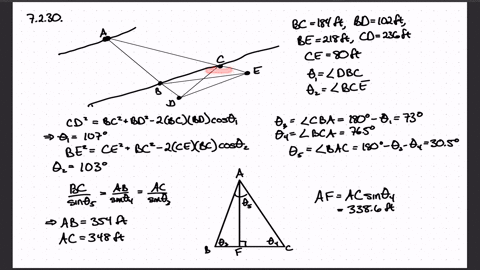 7.2.30.
A
C
E
B
D
BC = 184 ft, BD = 102 ft,
BE = 218 ft, CD = 236 ft
CE = 80 ft
θ₁ = ∠DBC
θ₂ = ∠BCE
CD² = BC² + BD² - 2(BC)(BD)cosθ₁
⇒ θ₁ = 107°
BE² = CE² + BC² - 2(CE)(BC)cosθ₂
θ₂ = 103°
θ₃ = ∠CBA = 180° - θ₁ = 73°
θ₄ = ∠BCA = 76.5°
θ₅ = ∠BAC = 180° - θ₃ - θ₄ = 30.5°
BC/sinθ₅ = AB/sinθ₄ = AC/sinθ₃
⇒ AB = 354 ft
AC = 348 ft
A
θ₅
B θ₃ F θ₄ C
AF = AC sinθ₄
= 338.6 ft